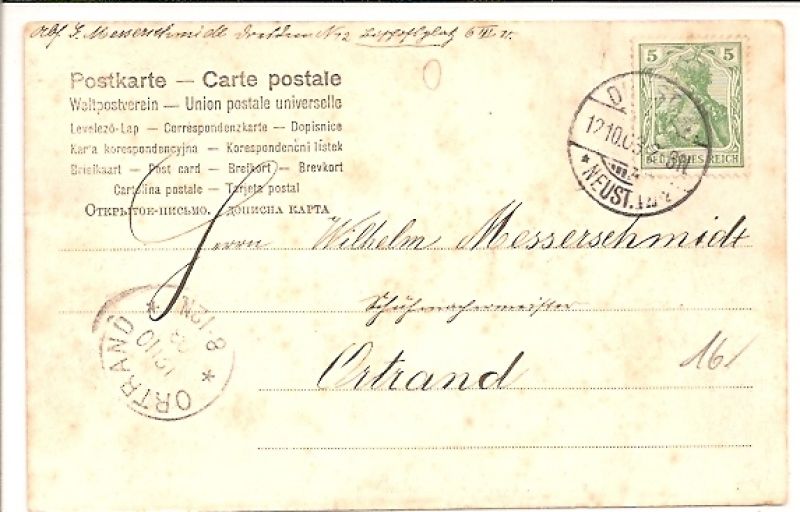 Abs. G. Messerschmidt Dresden N 12 6 III r.
Postkarte — Carte postale
Weltpostverein — Union postale universelle
Levelező-Lap — Correspondenzkarte — Dopisnice
Karta korespondencyjna — Korespondenční listek
Briefkaart — Post card — Brefkort — Brevkort
Cartolina postale — Tarjeta postal
Открытое-письмо. Дописна карта
5 5
DEUTSCHES REICH
12.10.03.
* NEUST.
Herrn Wilhelm Messerschmidt
Schuhmachermeister
Ortrand
161
ORTRAND
12 10
8-12N.